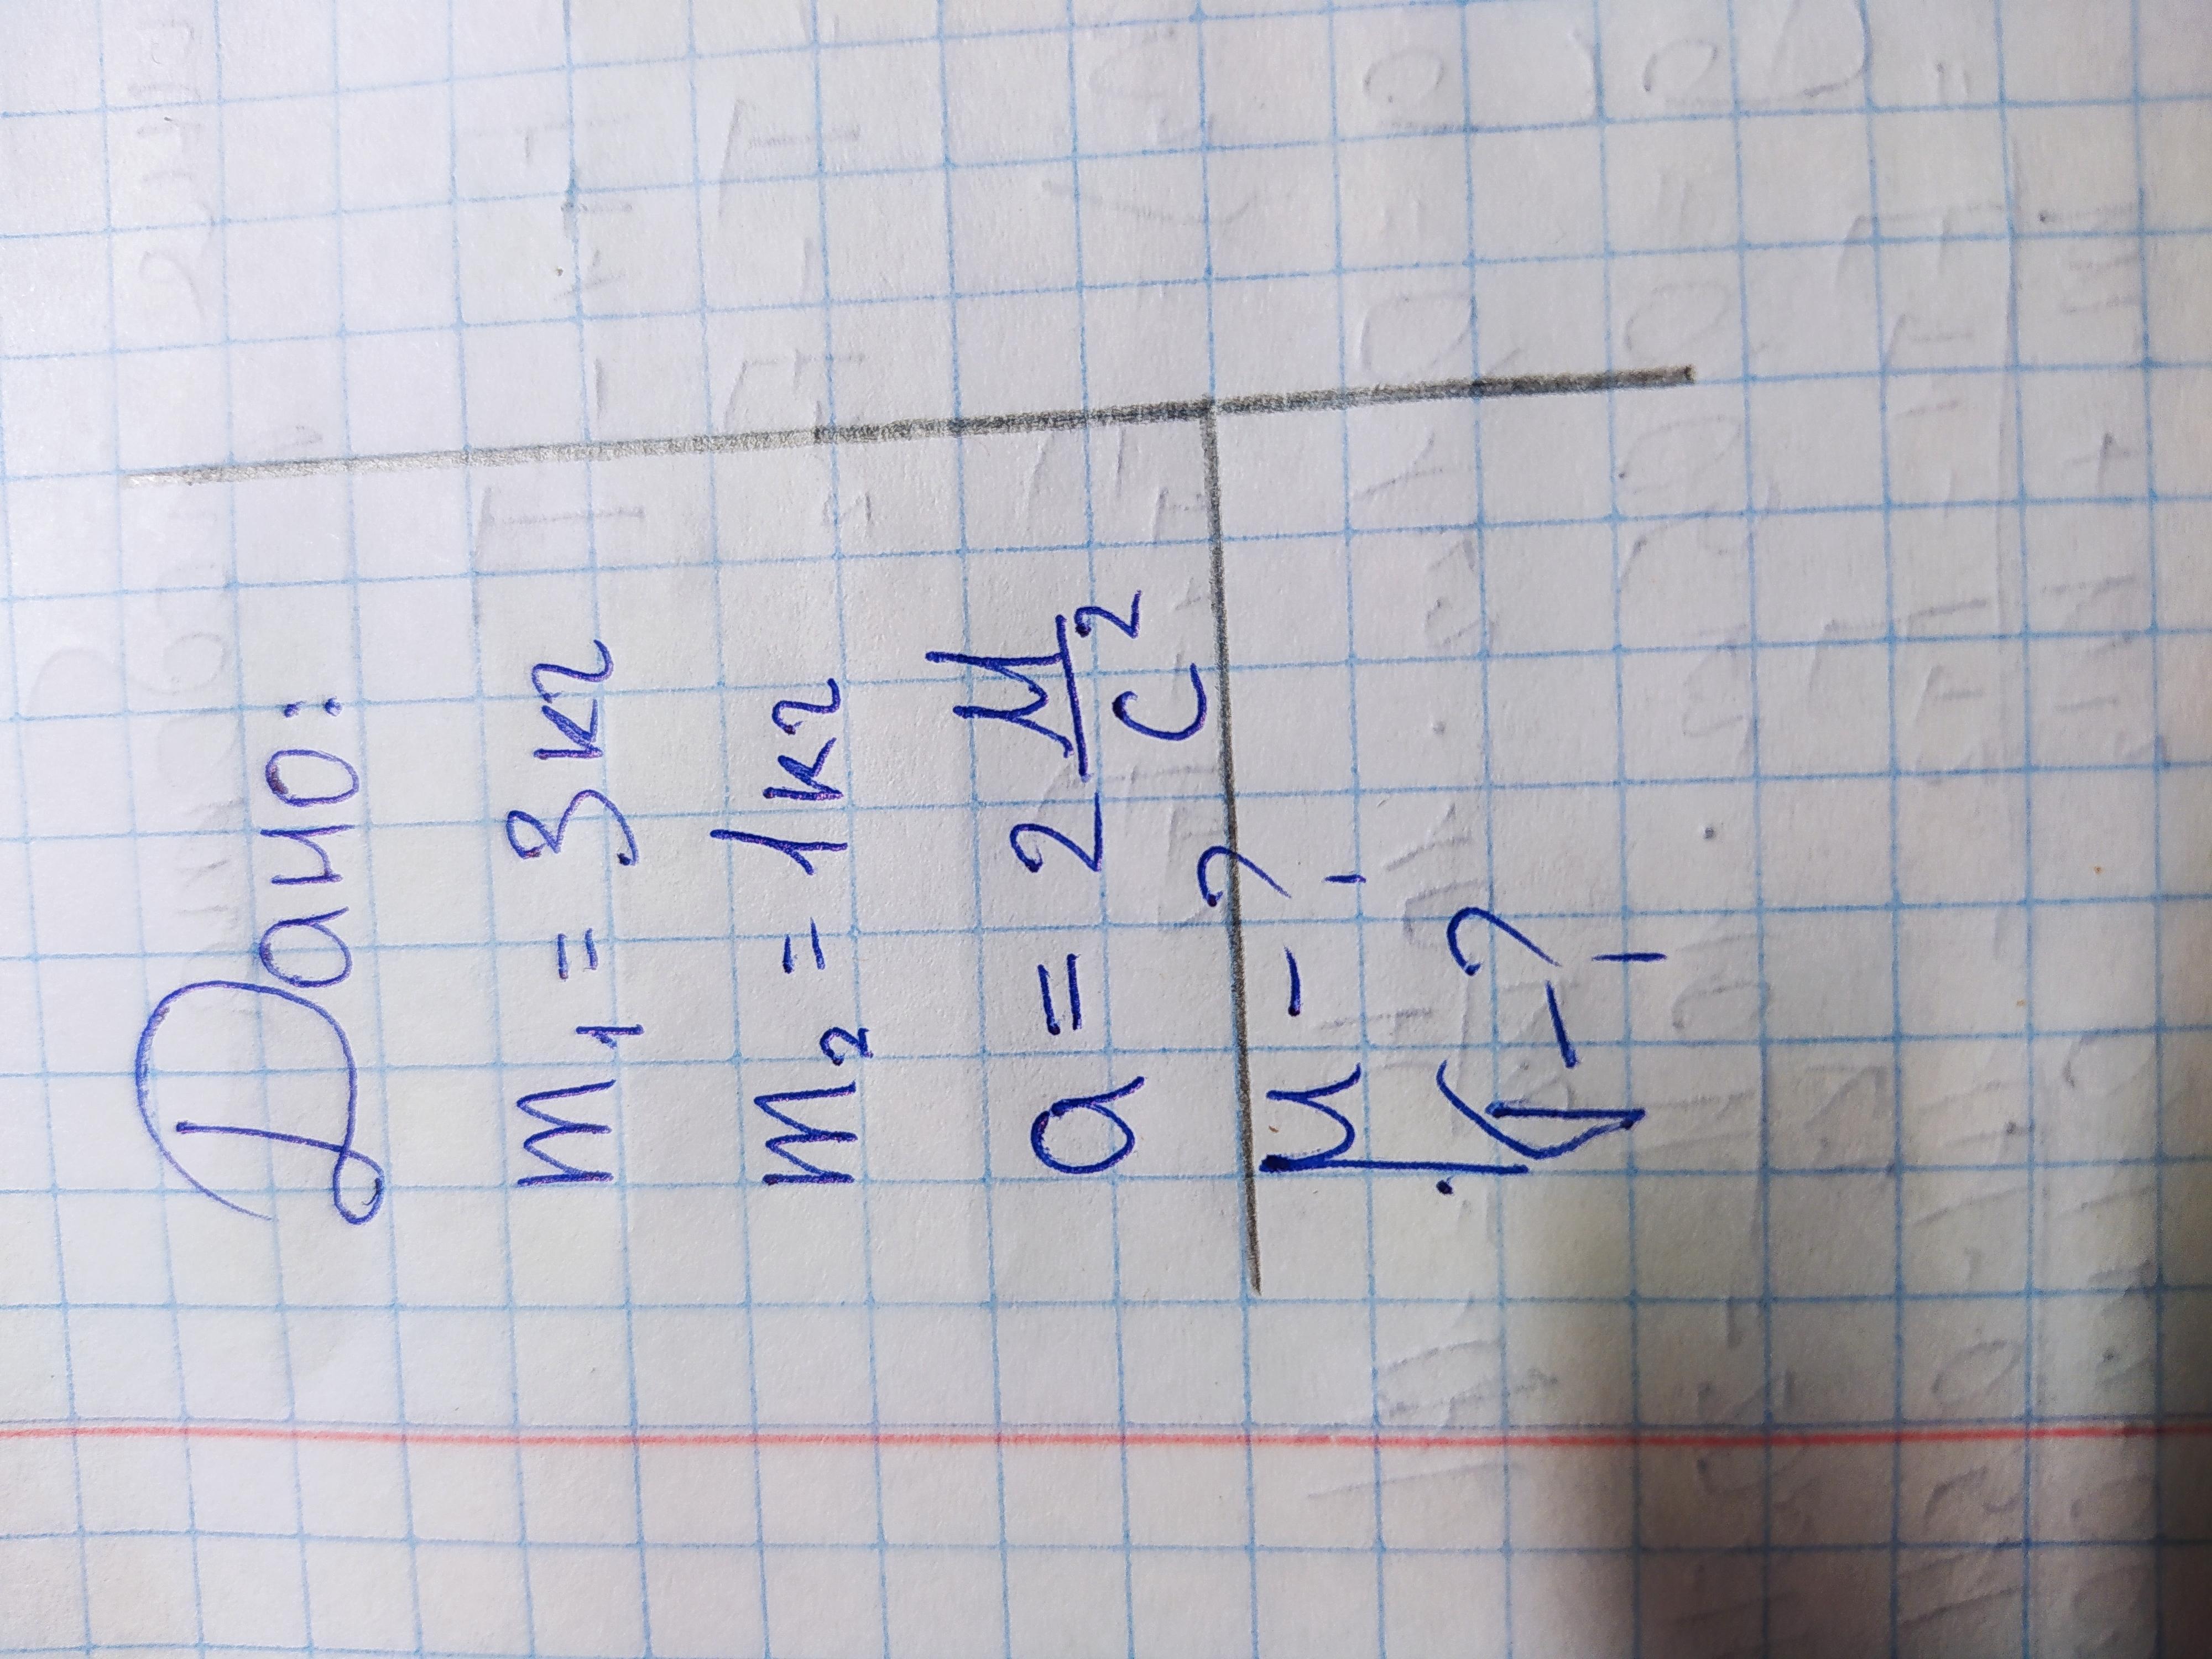 Дано:
m₁ = 3 кг
m₂ = 1 кг
a = 2 м/с²
μ - ?